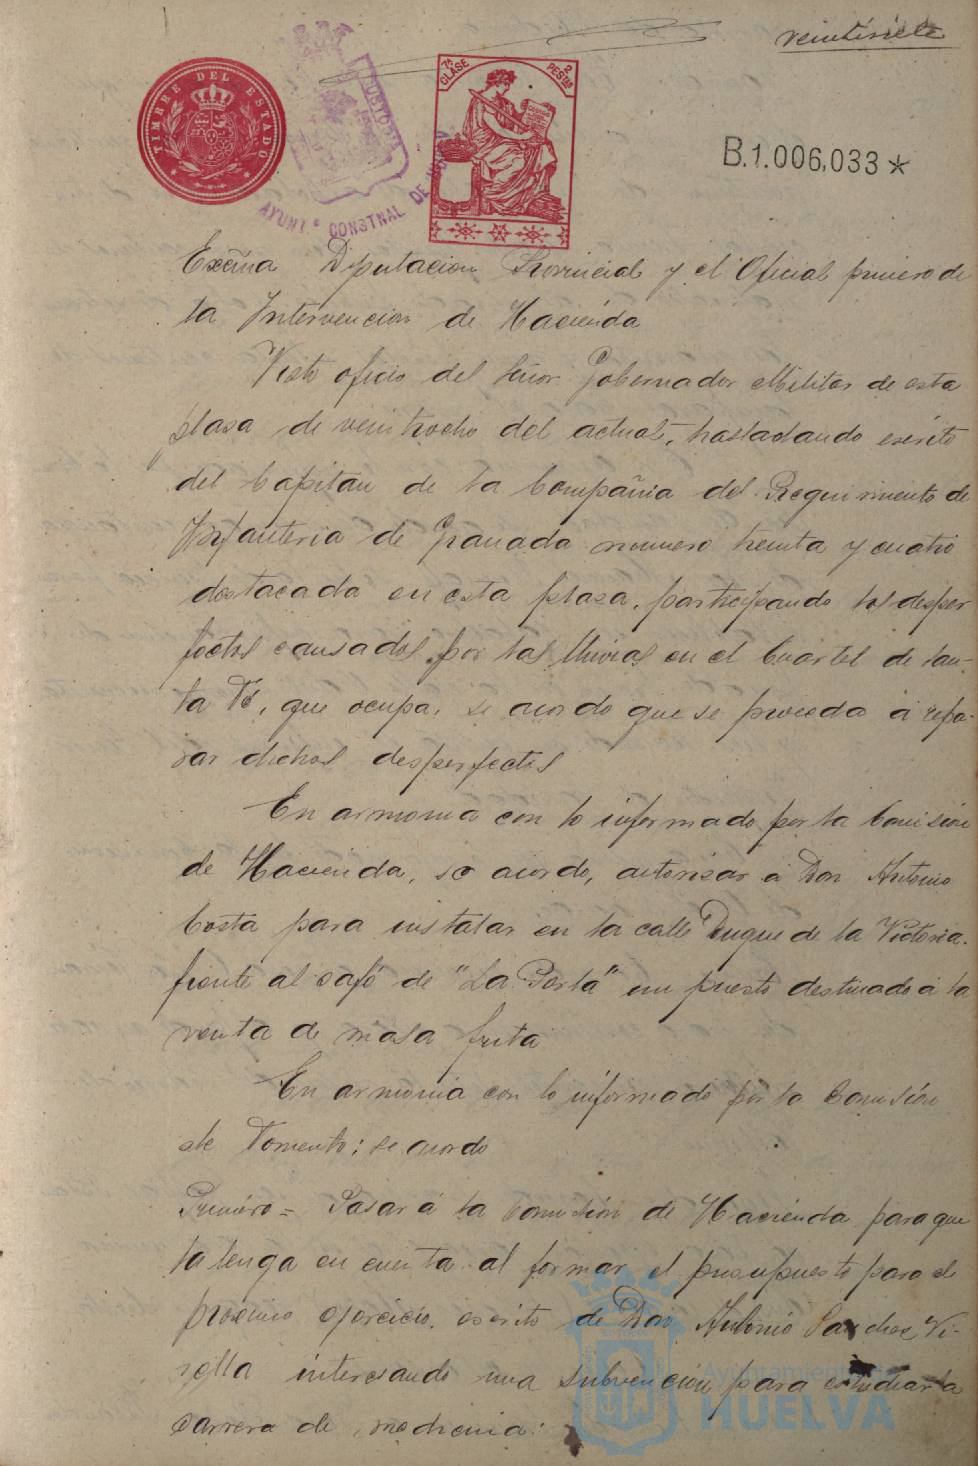 veintisiete
TIMBRE DEL ESTADO
7ª CLASE 2 PESTAS
AYUNTº CONSTNAL DE HUELVA
B.1.006,033*
Excma Diputacion Provincial y el Oficial primero de
la Intervencion de Hacienda
Visto oficio del Señor Gobernador Militar de esta
plasa de veintiocho del actual, trasladando escrito
del Capitan de la Compañia del Reguimiento de
Infanteria de Granada numero treinta y cuatro
destacada en esta plasa, participando los desper
fectos causados por las lluvias en el Cuartel de San-
ta Fé, que ocupa, se acordo que se proceda á repa-
rar dichos desperfectos
En armonia con lo informado por la Comisión
de Hacienda, se acordo, autorisar á Don Antonio
Costa para instalar en la calle Duque de la Victoria.
frente al café de "La Perla" un puesto destinado á la
venta de masa frita
En armonia con lo informado por la Comisión
de Fomento; se acordo
Primero = Pasar á la Comisión de Hacienda para que
la tenga en cuenta al formar el presupuesto para el
proximo ejercicio, escrito de Don Antonio Sanchez Vi-
sella interesando una subvención para estudiar la
carrera de medicina:
Ayuntamiento de
HUELVA